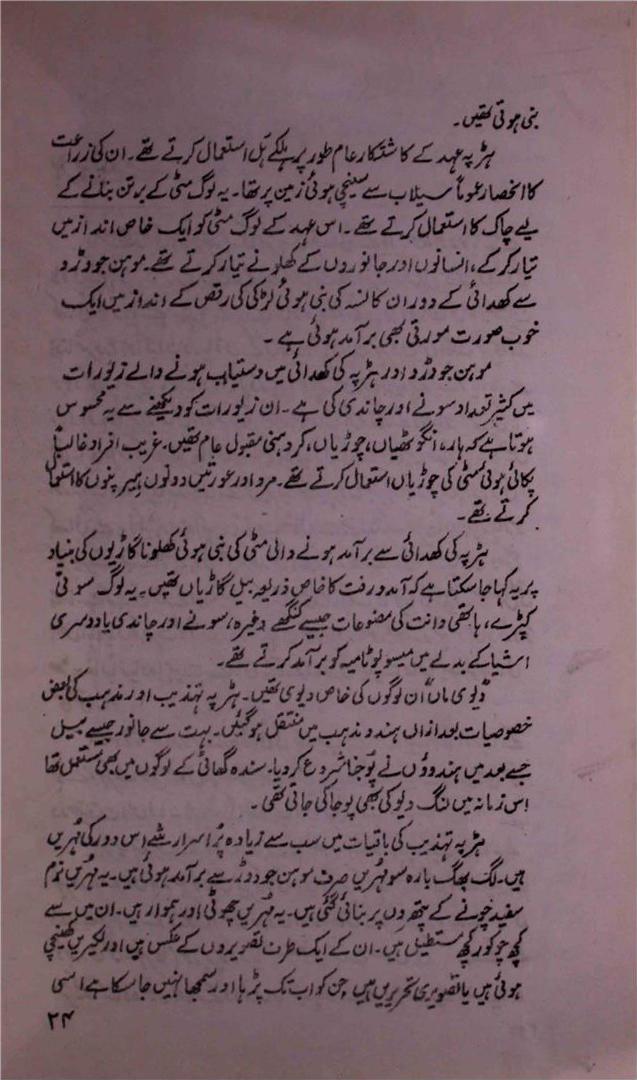 بنی ہوتی تھیں۔
ہڑپہ عہد کے کاشتکار عام طور پر ہلکے ہل استعمال کرتے تھے۔ ان کی زراعت
کا انحصار عموماً سیلاب سے سینچی ہوئی زمین پر تھا۔ یہ لوگ مٹی کے برتن بنانے کے
لیے چاک کا استعمال کرتے تھے۔ اس عہد کے لوگ مٹی کو ایک خاص انداز میں
تیار کرکے، انسانوں اور جانوروں کے کھلونے تیار کرتے تھے۔ موہن جودڑو
سے کھدائی کے دوران کانسہ کی بنی ہوئی لڑکی کی رقص کے انداز میں ایک
خوب صورت مورتی بھی برآمد ہوئی ہے۔
موہن جودڑو اور ہڑپہ کی کھدائی میں دستیاب ہونے والے زیورات
میں کثیر تعداد سونے اور چاندی کی ہے۔ ان زیورات کو دیکھنے سے یہ محسوس
ہوتا ہے کہ ہار، انگوٹھیاں، چوڑیاں، کردھنی مقبول عام تھیں۔ غریب افراد غالباً
پکائی ہوئی مٹی کی چوڑیاں استعمال کرتے تھے۔ مرد اور عورتیں دونوں ہیرپنوں کا استعمال
کرتے تھے۔
ہڑپہ کی کھدائی سے برآمد ہونے والی مٹی کی بنی ہوئی کھلونا گاڑیوں کی بنیاد
پر یہ کہا جا سکتا ہے کہ آمد و رفت کا خاص ذریعہ بیل گاڑیاں تھیں۔ یہ لوگ سوتی
کپڑے، ہاتھی دانت کی مصنوعات جیسے کنگھے وغیرہ، سونے اور چاندی یا دوسری
اشیا کے بدلے میں میسوپوٹامیہ کو برآمد کرتے تھے۔
"دیوی ماں" ان لوگوں کی خاص دیوی تھیں۔ ہڑپہ تہذیب اور مذہب کی بعض
خصوصیات بعد ازاں ہندو مذہب میں منتقل ہوگئیں۔ بہت سے جانور جیسے بیل
جسے بعد میں ہندوؤں نے پوجنا شروع کردیا۔ سندھ گھاٹی کے لوگوں میں بھی مستعمل تھا
اس زمانہ میں لنگ دیو کی بھی پوجا کی جاتی تھی۔
ہڑپہ تہذیب کی باقیات میں سب سے زیادہ پُراسرار شے اس دور کی مُہریں
ہیں۔ لگ بھگ بارہ سو مُہریں صرف موہن جودڑو سے برآمد ہوئی ہیں۔ یہ مُہریں نرم
سفید چونے کے پتھروں پر بنائی گئی ہیں۔ یہ مُہریں چھوٹی اور ہموار ہیں۔ ان میں سے
کچھ چوکور کچھ مستطیل ہیں۔ ان کے ایک طرف تصویروں کے عکس ہیں اور لکیریں کھینچی
ہوئی ہیں یا تصویری تحریریں ہیں جن کو اب تک پڑھا اور سمجھا نہیں جا سکا ہے اسی
۲۴